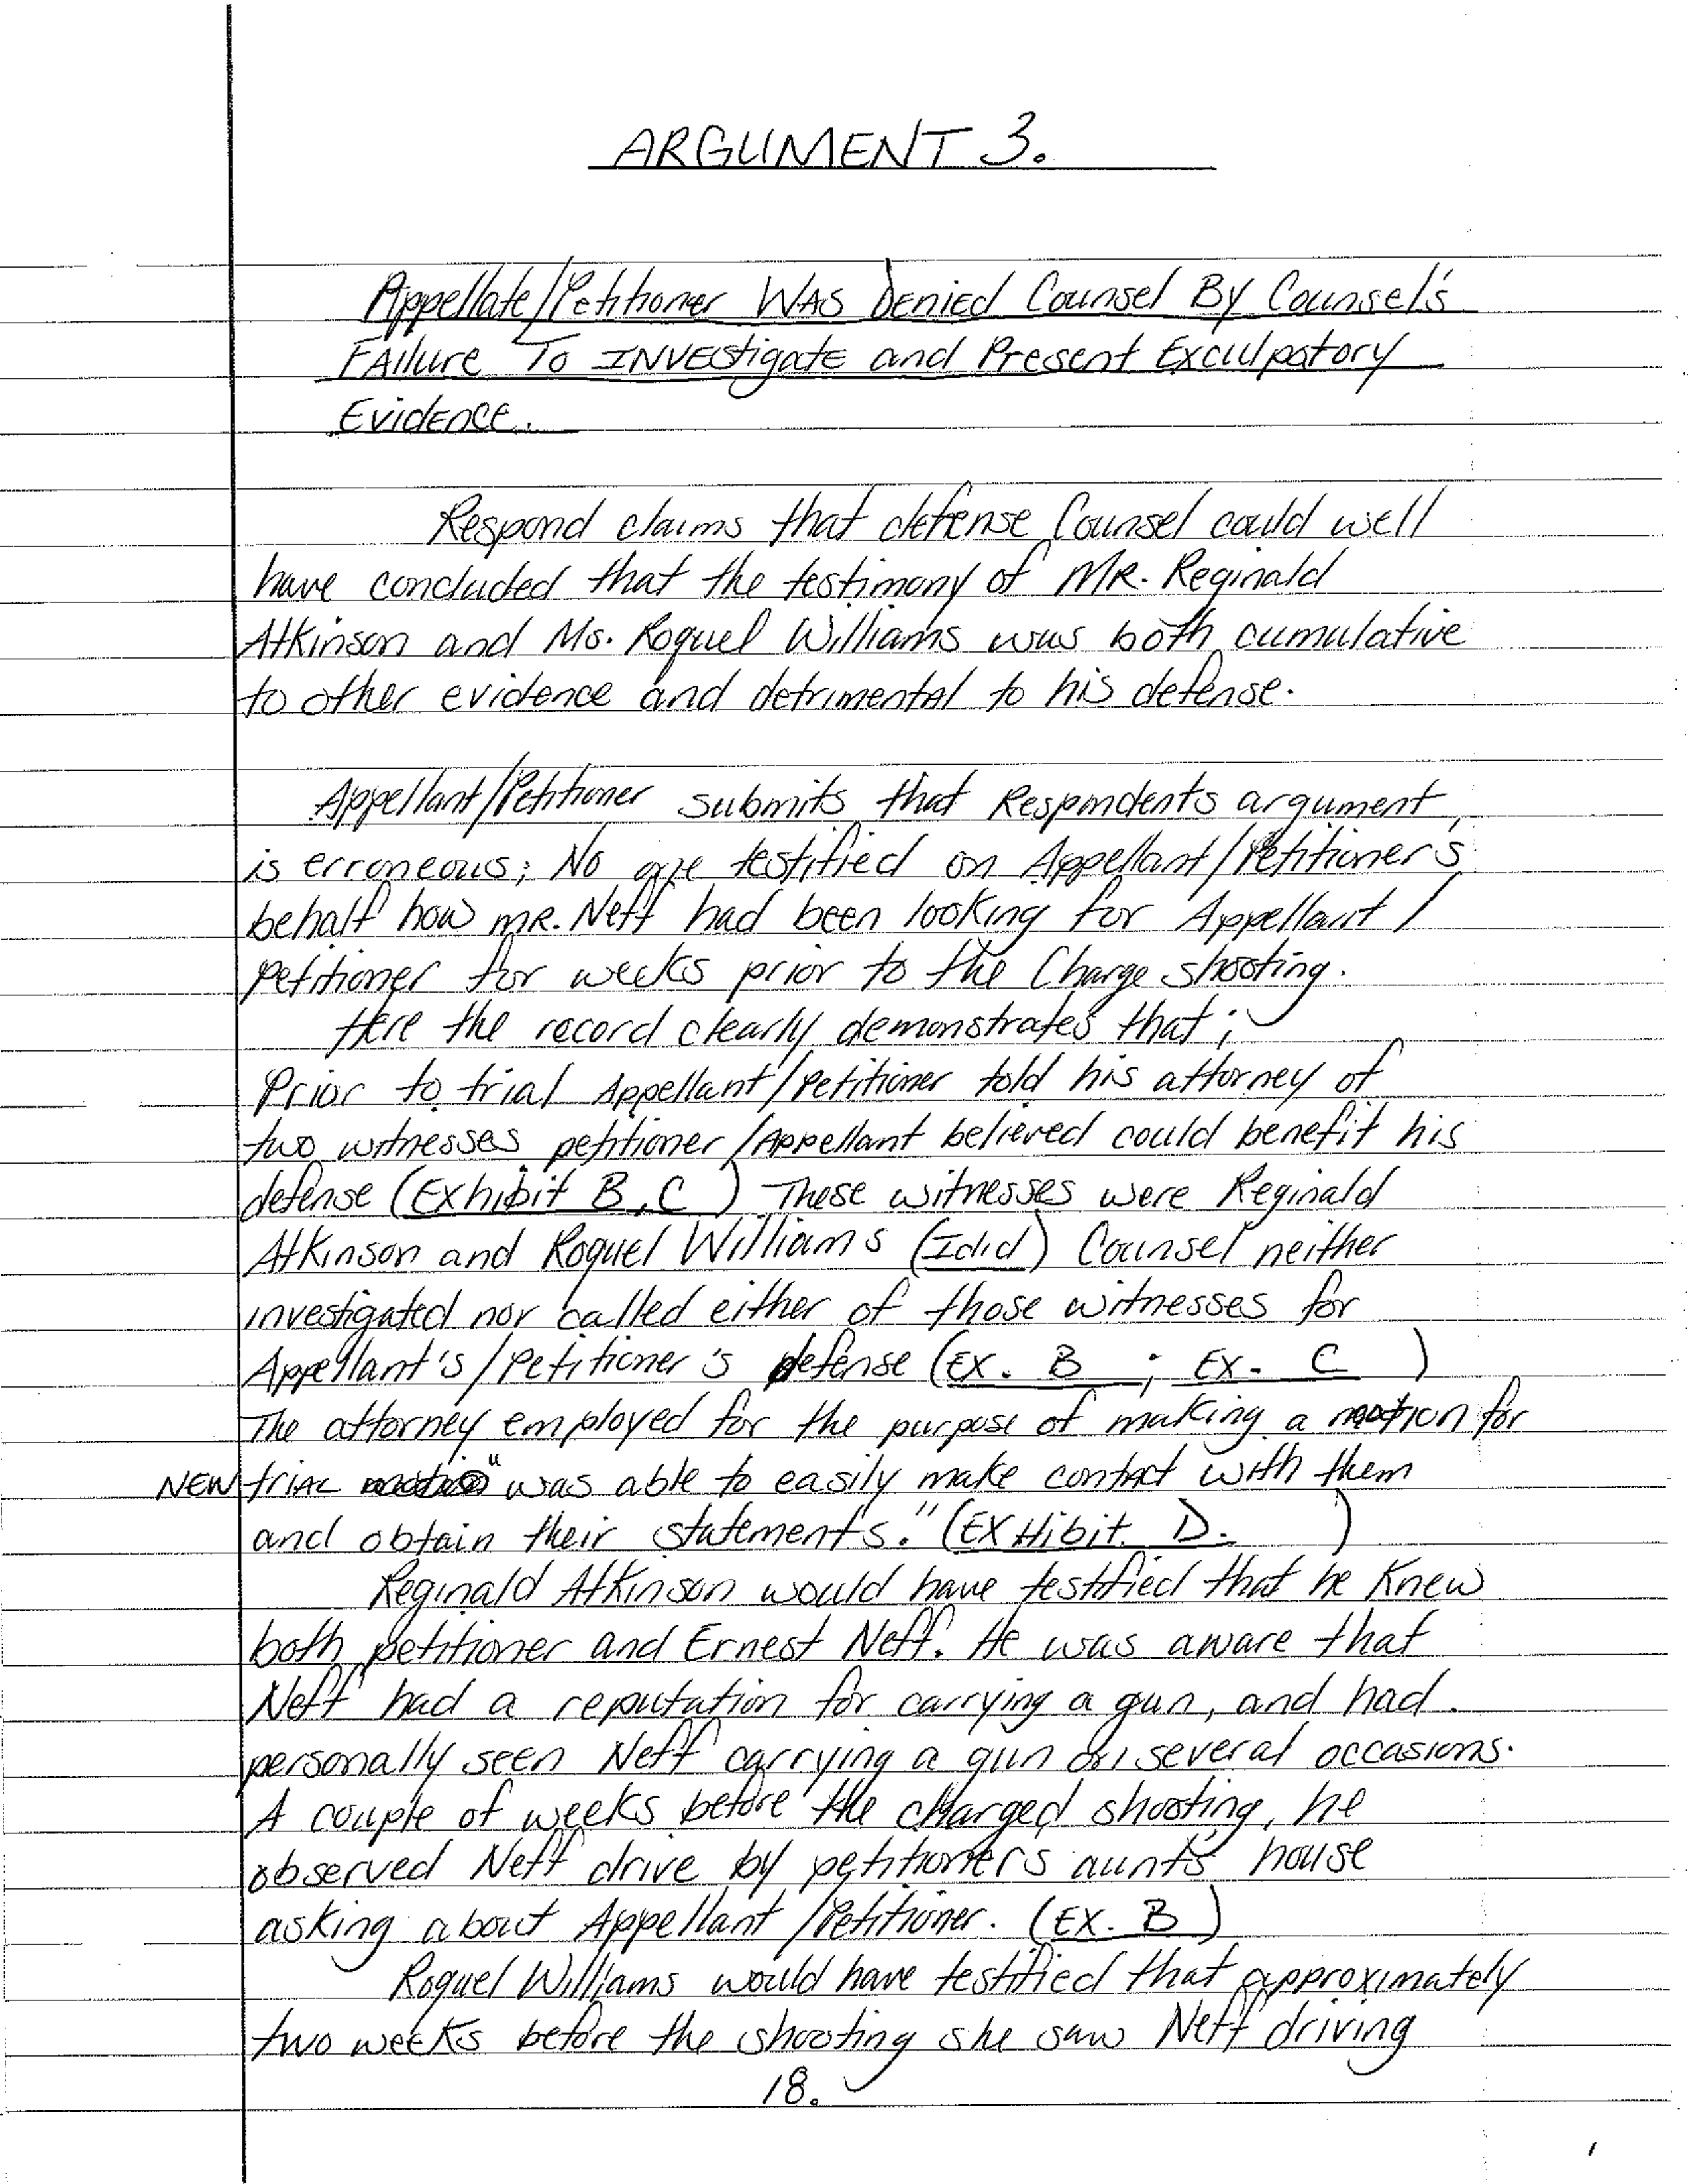 ARGUMENT 3.
Appellate/Petitioner WAS DENIED Counsel By Counsel's
FAIlure To INVEStigatE and Present Exculpatory
EvidENCE.
Respond claims that defense Counsel could well
have concluded that the testimony of MR. Reginald
Atkinson and Ms. Roquel Williams was both cumulative
to other evidence and detrimental to his defense.
Appellant/Petitioner submits that Respondents argument,
is erroneous; No one testified on Appellant/Petitioner's
behalf how MR. Neff had been looking for Appellant/
petitioner for weeks prior to the Charge shooting.
Here the record clearly demonstrates that;
Prior to trial Appellant/Petitioner told his attorney of
two witnesses petitioner/Appellant believed could benefit his
defense (Exhibit B, C ) These witnesses were Reginald
Atkinson and Roquel Williams (Idid) Counsel neither
investigated nor called either of those witnesses for
Appellant's/Petitioner's defense (EX. B ; EX. C )
The attorney employed for the purpose of making a motion for
NEW trial " was able to easily make contact with them
and obtain their statements." (EXHibit. D. )
Reginald Atkinson would have testified that he Knew
both petitioner and Ernest Neff. He was aware that
Neff had a reputation for carrying a gun, and had.
personally seen Neff carrying a gun on several occasions.
A couple of weeks before the charged shooting, he
observed Neff drive by petitioner's aunt's house
asking about Appellant/Petitioner. (EX. B)
Roquel Williams would have testified that approximately
two weeks before the shooting she saw Neff driving
18.